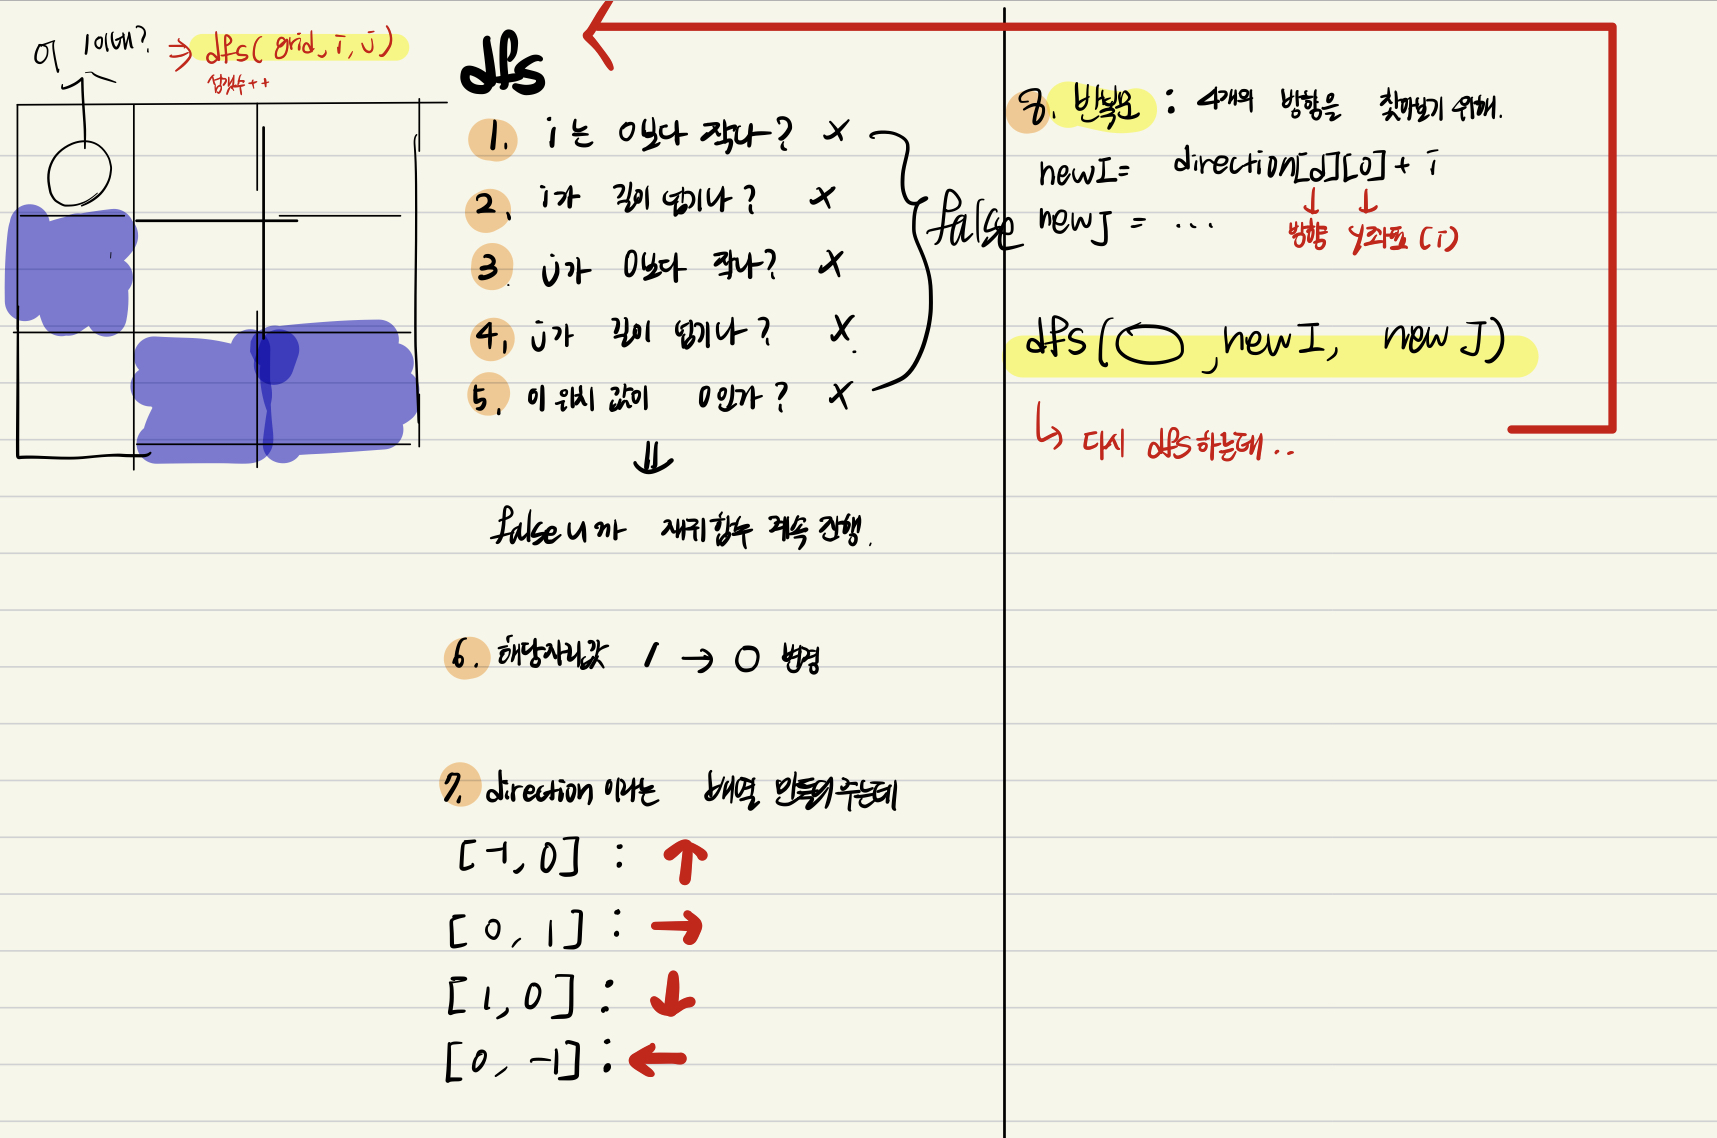 어 1이네? ⇒ dfs(grid, i, j)
섬개수++
dfs
1. i 는 0보다 작다? X
2. i가 길이 넘기나? X
3. j가 0보다 작나? X
4. j가 길이 넘기나? X
5. 이 위치 값이 0인가? X
false
⇓
false니까 재귀함수 계속 진행.
6. 해당자리값 1 → 0 변경
7. direction 이라는 배열 만들어주는데
[-1, 0] : ↑
[0, 1] : →
[1, 0] : ↓
[0, -1] : ←
8. 반복문 : 4개의 방향을 찾아보기 위해.
newI = direction[d][0] + i
↓ ↓
newJ = ...
방향 y좌표(i)
dfs( , newI, newJ)
↳ 다시 dfs하는데..